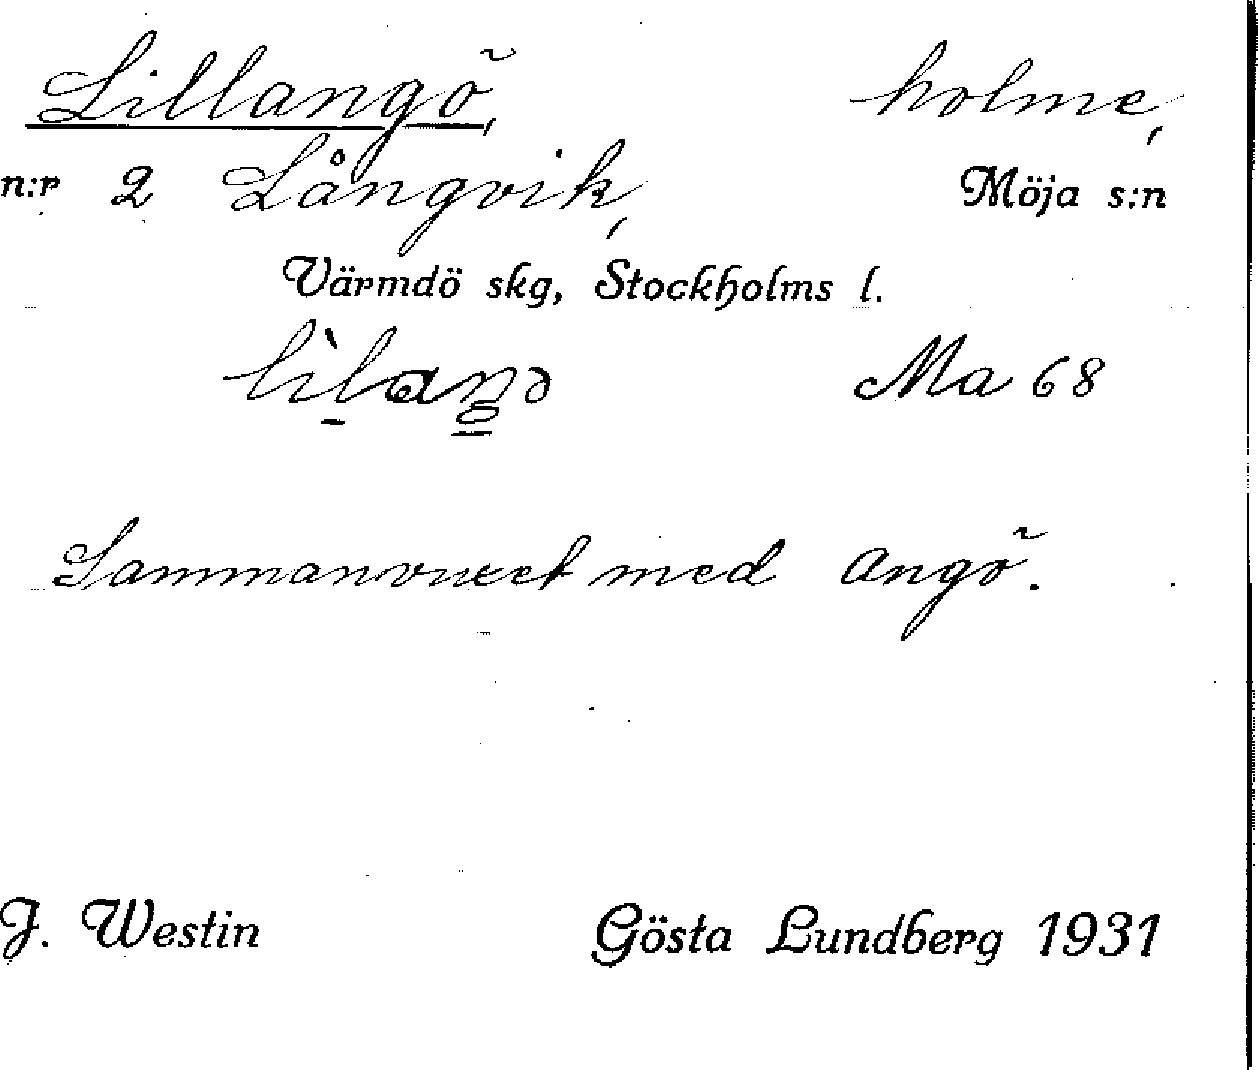 Lillangö, holme,
n:r 2 Långvik, Möja s:n
Värmdö skg, Stockholms l.
Ma 68
Sammanvuxet med Angö.
J. Westin Gösta Lundberg 1931